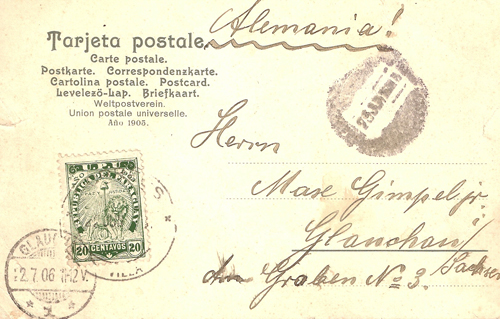 Alemania!
Tarjeta postale.
Carte postale.
Postkarte. Correspondenzkarte.
Cartolina postale. Postcard.
Levelező-Lap. Briefkaart.
Weltpostverein.
Union postale universelle.
Año 1905.
Herrn
Max Gimpel jr.
i/
Glauchau/
Sachsen
Am Graben No 3.
REPUBLICA DEL PARAGUAY
20 CENTAVOS 20
VILLA
GLAUCHAU
2.7.06